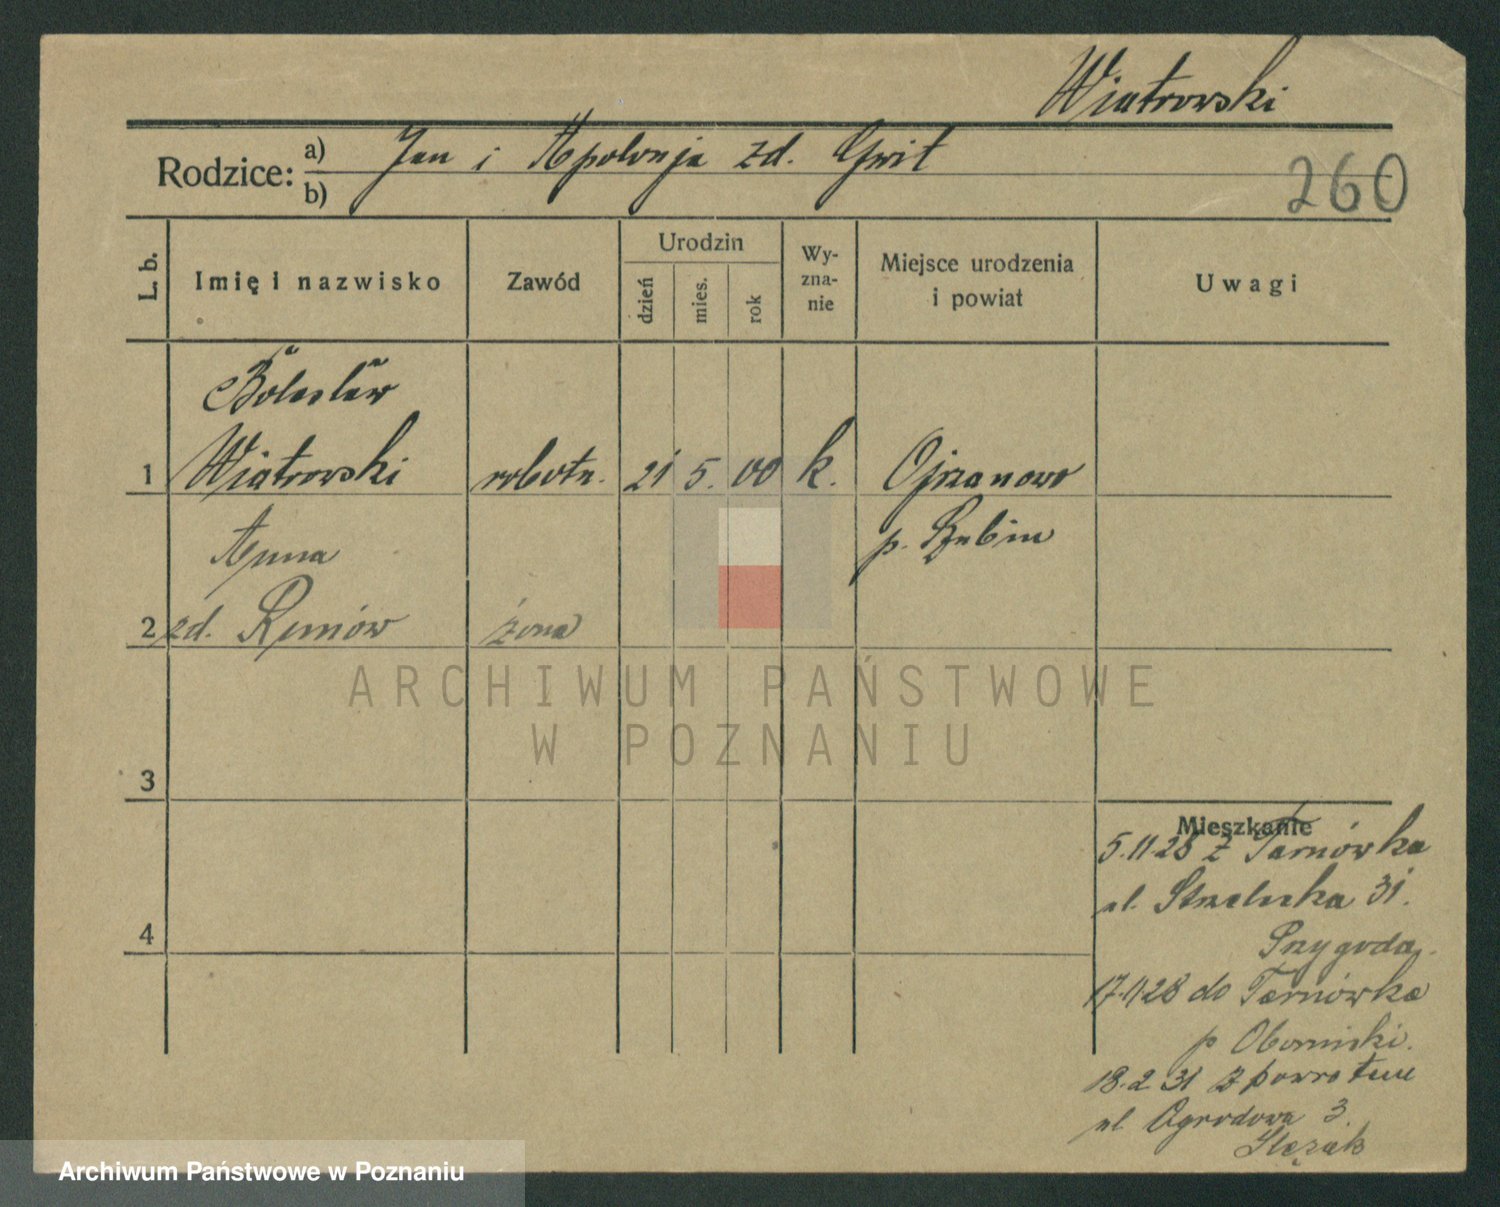 Wiatrowski
Rodzice: a) Jan i Apolonja zd. Gwit
b)
260
L. b.
Imię i nazwisko
Zawód
Urodzin
dzień
mies.
rok
Wy-
zna-
nie
Miejsce urodzenia
i powiat
Uwagi
Bolesław
1 Wiatrowski robotn. 21 5. 00 k. Ojrzanowo
p. Szubin
Anna
2 zd. żona
3
4
Mieszkanie
5.11.28 z Tarnówka
ul. Strzelecka 31.
Przygoda.
17.11.28 do Tarnówka
p Obornicki.
18.2.31 z powrotem
ul Ogrodowa 3.
Ślęzak
ARCHIWUM PAŃSTWOWE
W POZNANIU
Archiwum Państwowe w Poznaniu